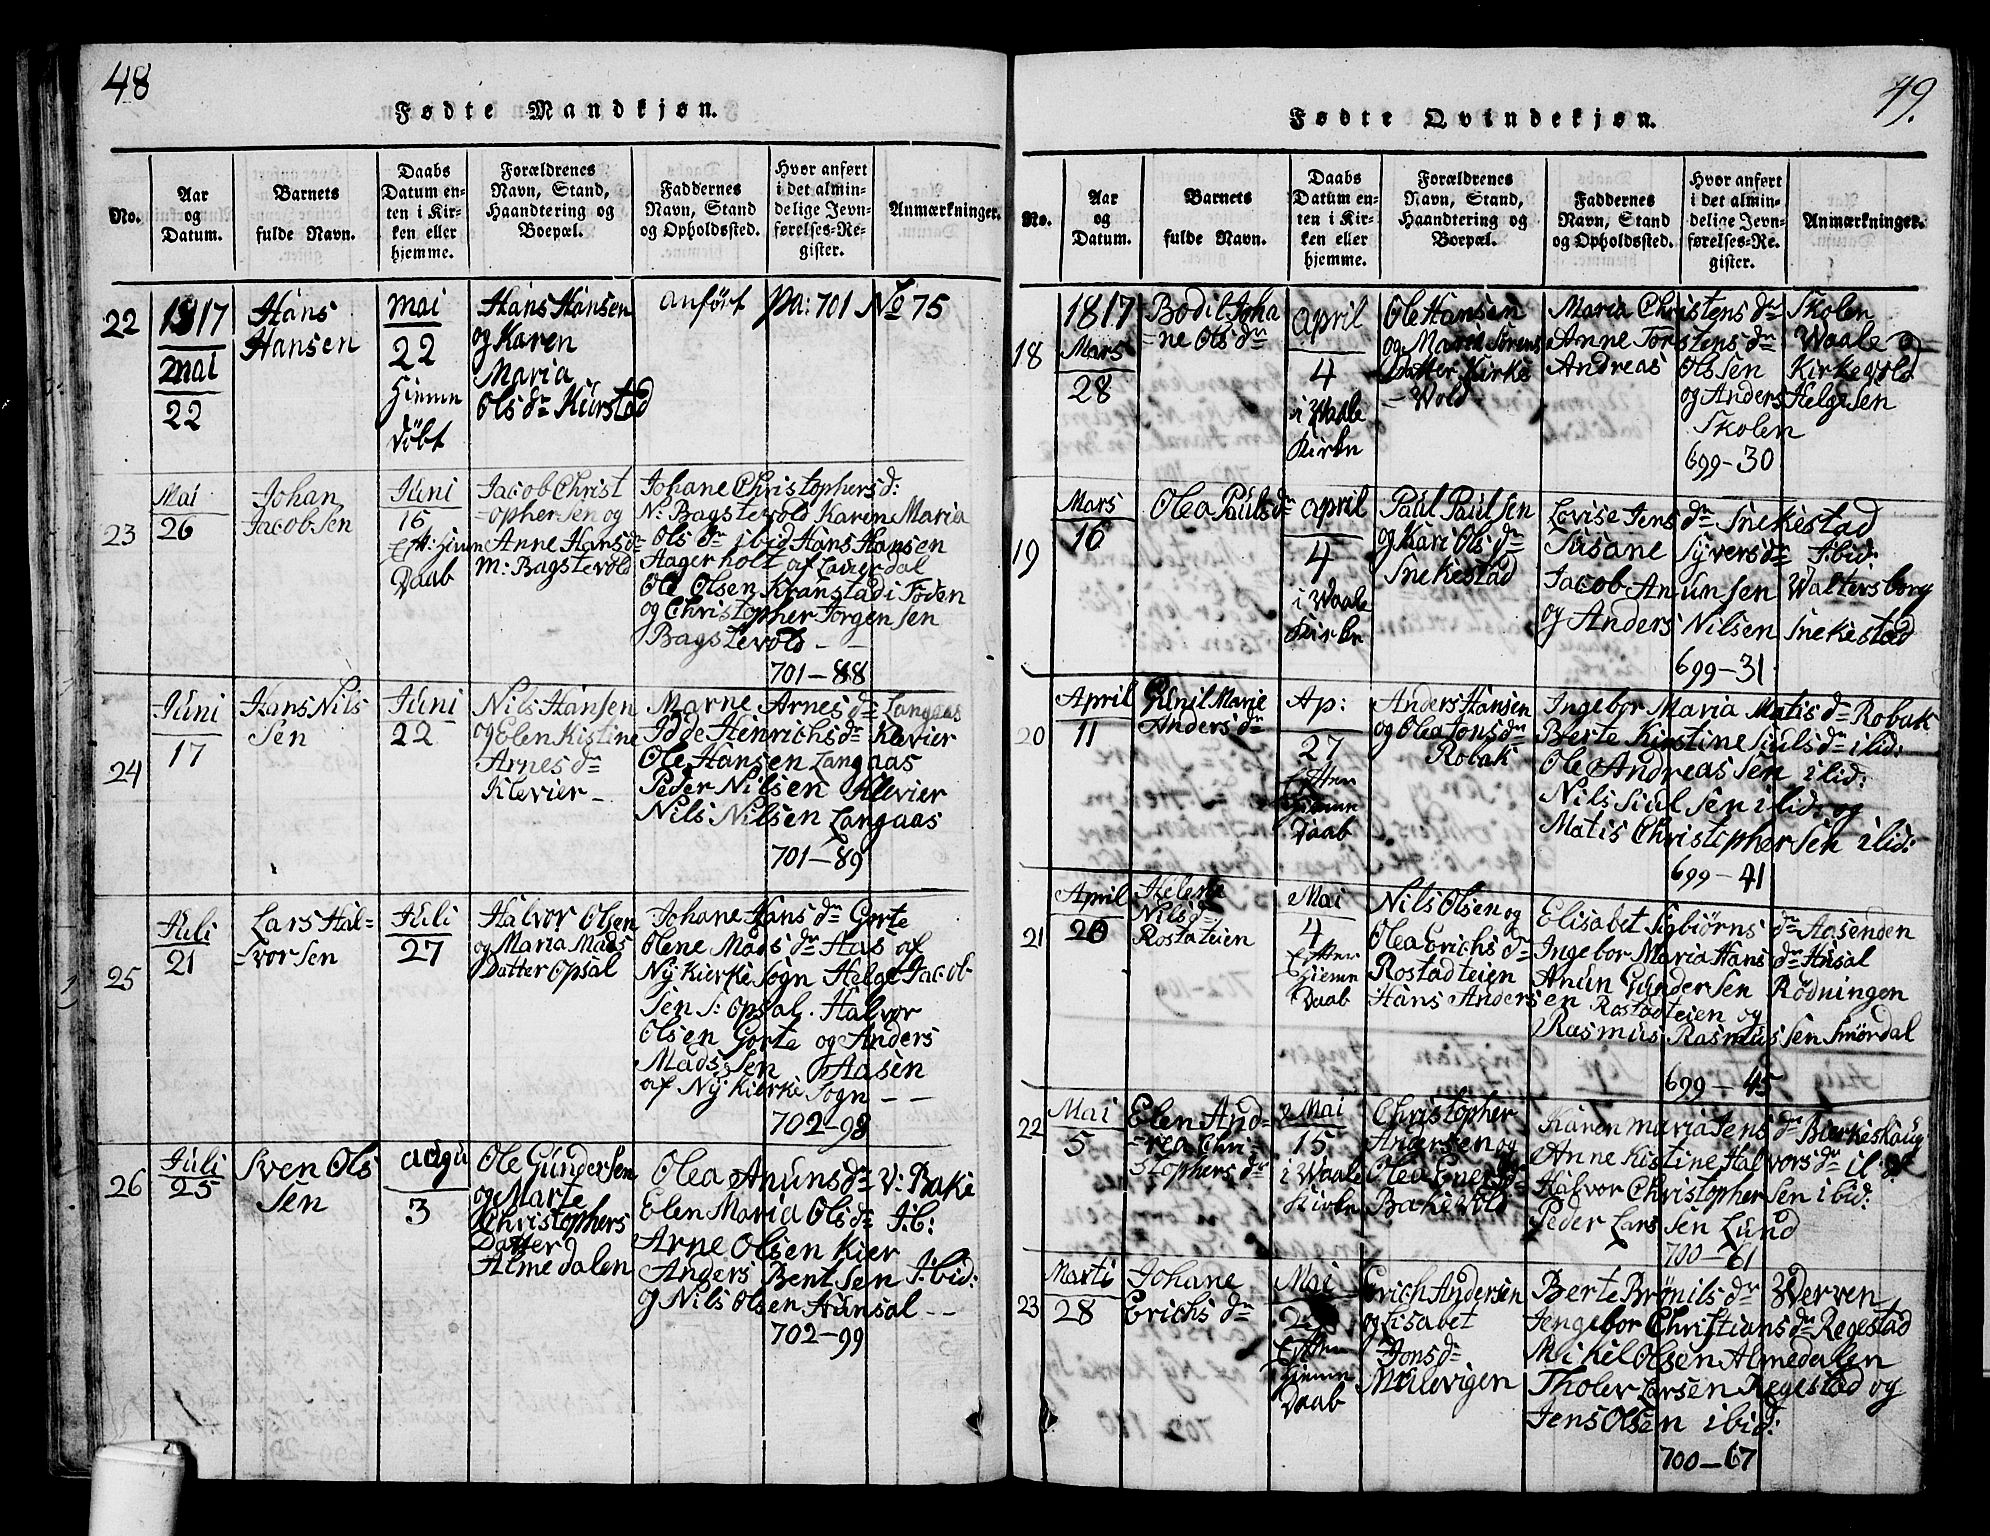 48
Fødte Mandkjøn.
No.
Aar
og
Datum.
Barnets
fulde Navn.
Daabs
Datum en-
ten i Kir-
ken eller
hjemme.
Forældrenes
Navn, Stand,
Haandtering og
Boepæl.
Faddernes
Navn, Stand
og Opholdssted.
Hvor anført
i det almin-
delige Jevn-
førelses-Re-
gister.
Anmærkninger.
22
1817
mai
22
Hans
Hansen
mai
22
Hiemm
døbt
Hans Hansen
og Karen
Maria
Ols dr Kürstad
anført pa: 701 No 75
23
Mai
26
Johan
Jacobsen
Juni
15
Eft: hiem
Daab
Jacob Christ
ophersen og
Anne Hansdr
m: Bagstevold
Johane Christophers d:
N: Bagstevold Karin Maria
Ols dr ibid Hans Hansen
Hagerholt af Laverdal
Ole Olsen Kranstad i Foden
og Christopher Jorgensen
Bagstevold
701-88
24
Juni
17
Hans Nils
sen
Juni
22
Nils Hansen
og Elen Kistine
Arnes dr
Klevier
Marne Arnes dr Langaas
Idde Heinrichs dr Klevier
Ole Hansen Langaas
Peder Nilsen Klevier
Nils Nilsen Langaas
701-89
25
Juli
21
Lars Hal-
vorsen
Juli
27
Halvor Olsen
og Maria Mads
Datter Opsal
Johane Hans dr Gorte
Olene Mads dr Aas af
Ny Kierke Sogn Helge Jacob
sen S: Opsal. Halvor
Olsen Gorte og Anders
Madssen Aasen
af Ny Kierke Sogn
702-98
26
Juli
25
Sven Ols
sen
augu
3
Ole Gundersen
og Marte
Christophers
Datter
Almedalen
Olea Anuns dr V: Bake
Elen Maria Ols dr J:b:
Arne Olsen Kier
Anders Bentsen J:bid:
og Nils Olsen Hunsal
702-99
49.
Fødte Qvindekjøn.
No.
Aar
og
Datum.
Barnets
fulde Navn.
Daabs
Datum en-
ten i Kir-
ken eller
hjemme.
Forældrenes
Navn, Stand,
Haandtering og
Boepæl.
Faddernes
Navn, Stand
og Opholdssted.
Hvor anført
i det almin-
delige Jevn-
førelses-Re-
gister.
Anmærkninger.
18
1817
Mars
28
Bodil Joha
ne Ols dr
april
4
i Waale
Kirke
Ole Hansen
og Maria Sørens
Datter Kirke
Wold
Maria Christens dr Skolen
Anne Torstens dr Waale
Andreas Olssen Kirkevold
og Anders Helgesen
Skolen
699-30
19
Mars
16
Olea Pauls dr
april
4
i Waale
Kirke
Paul Paulsen
og Kari Ols dr
Snekestad
Lovise Jens dr Snekestad
Susane Syvers dr Ibid:
Jacob Anunsen Waltersborg
og Anders Nilsen Snekestad
699-31
20
April
11
Gunil Marie
Anders dr
Ap:
27
Efter
hiemm
Daab
Anders Hansen
og Olea Jons dr
Robak
Ingebor Maria Matis dr Robak
Berte Kirstine Siuls dr ibid:
Ole Andreassen ibid:
Nils Siulsen ibid: og
Matis Christophersen ibid:
699-41
21
April
20
Helene
Nils d
Rostateien
Mai
4
Efter
hiemm
Daab
Nils Olsen og
Olea Erichs dr
Rostadteien
Elisabet Sigbiørns dr Aasenden
Ingebor Maria Hans dr Hunsal
Anun Gundersen Rødningen
Hans Andersen Rostadteien og
Rasmus Rasmussen Smørdal
699-45
22
Mai
5
Elen And-
rea Chri-
stophers dr
Mai
15
i Waale
Kirke
Christopher
Andersen og
Olea Eners dr
Bakevold
Karen maria Jens dr Bierkeskaug
Anne Kistine Halvors dr
Halvor Christophersen ibid:
Peder Larssen Lund
700-61
23
Marti
28
Johane
Erichs dr
Mai
Efter
hiemm
Daab
Erich Andersen
og Lisabet
Jons d
Mulevigen
Berte Brønils dr Werven
Jengebor Christians dr Regestad
Mikel Olsen Almedalen
Tholer Larsen Regestad og
Jens Olsen ibid:
700-67